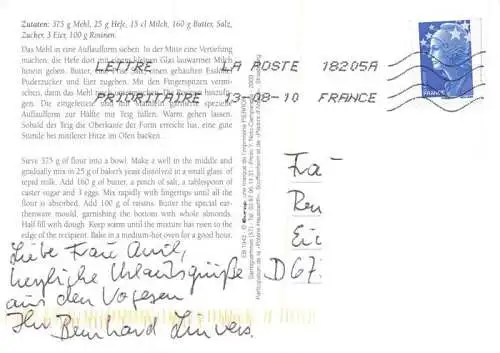 Zutaten: 375 g Mehl, 25 g Hefe, 15 cl Milch, 160 g Butter, Salz,
Zucher, 3 Eier, 100 g Rosinen.
Das Mehl in eine Auflaufform sieben. In der Mitte eine Vertiefung
machen, die Hefe dort mit einem kleinen Glas lauwarmer Milch
hinein geben. Butter, eine Prise Salz, einen gehauften Esslöffel
Puderzucker und Eier zugeben. Mit den Fingerspitzen vermengen,
dann das Mehl
Die eingeweichten und mit Mandeln
Auflaufform zur Hälfte mit Teig füllen. Warm gehen lassen.
Sobald der Teig die Oberkante der Form erreicht has, eine gute
Stunde bei mittlerer Hitze im Ofen backen.
LETTRE LA POSTE 18205A
PRIORITAIRE 13-08-10 FRANCE
FRANCE
Sieve 375 g of flour into a bowl. Make a well in the middle and
gradually mix in 25 g of baker's yeast dissolved in a small glass of
tepid milk. Add 160 g of butter, a pinch of salt, a tablespoon of
caster sugar and 3 eggs. Mix rapidly with fingertips until all the
flour is absorbed. Add 100 g of raisins. Butter the special earthenware
mould, garnishing the bottom with whole almonds.
Half fill with dough. Keep warm until the mixture has risen to the
edge of the recipient. Bake in a medium-hot oven for a good hour.
Liebe Frau
herzliche Urlaubsgrüße
aus den Vogesen
Ihr Bernhard
Frau
Ren
Eic
D 67